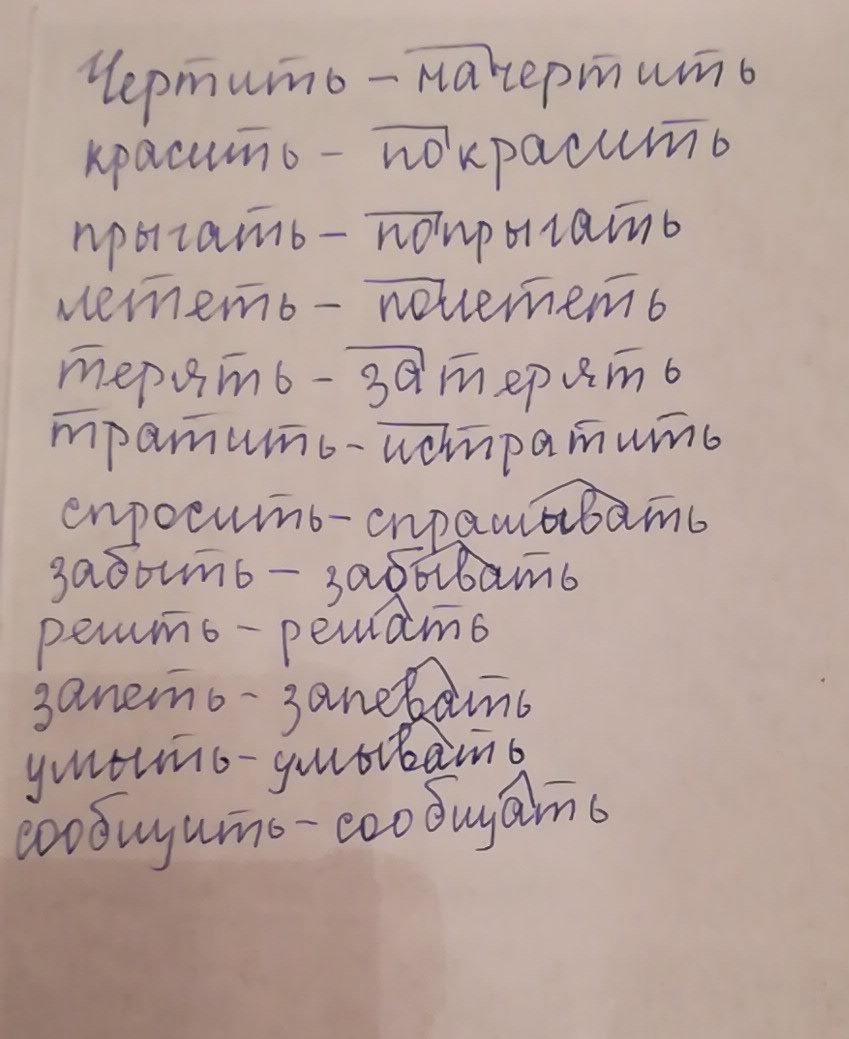 Чертить – начертить
красить – покрасить
прыгать – попрыгать
лететь – полететь
терять – затерять
тратить – истратить
спросить – спрашывать
забыть – забывать
решть – решать
запеть – запевать
умыть – умывать
сообщить – сообщать